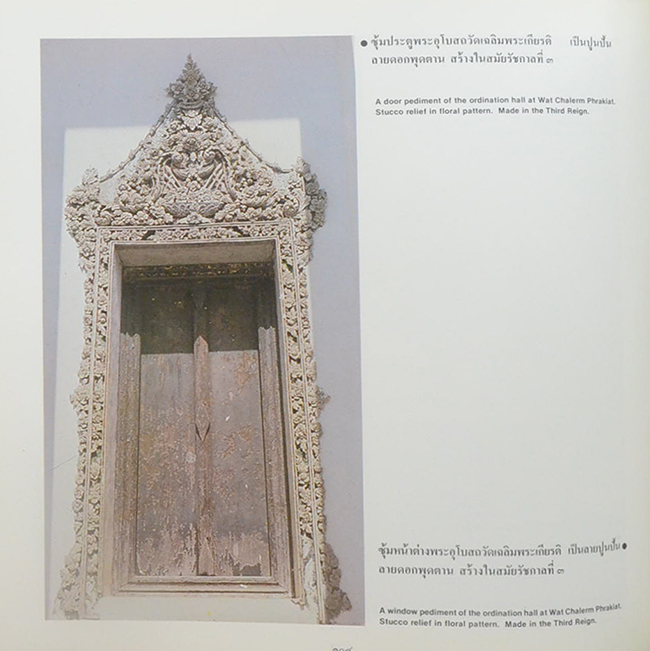 ● ซุ้มประตูพระอุโบสถวัดเฉลิมพระเกียรติ เป็นปูนปั้น
ลายดอกพุดตาน สร้างในสมัยรัชกาลที่ ๓
A door pediment of the ordination hall at Wat Chalerm Phrakiat.
Stucco relief in floral pattern. Made in the Third Reign.
ซุ้มหน้าต่างพระอุโบสถวัดเฉลิมพระเกียรติ เป็นลายปูนปั้น ●
ลายดอกพุดตาน สร้างในสมัยรัชกาลที่ ๓
A window pediment of the ordination hall at Wat Chalerm Phrakiat.
Stucco relief in floral pattern. Made in the Third Reign.